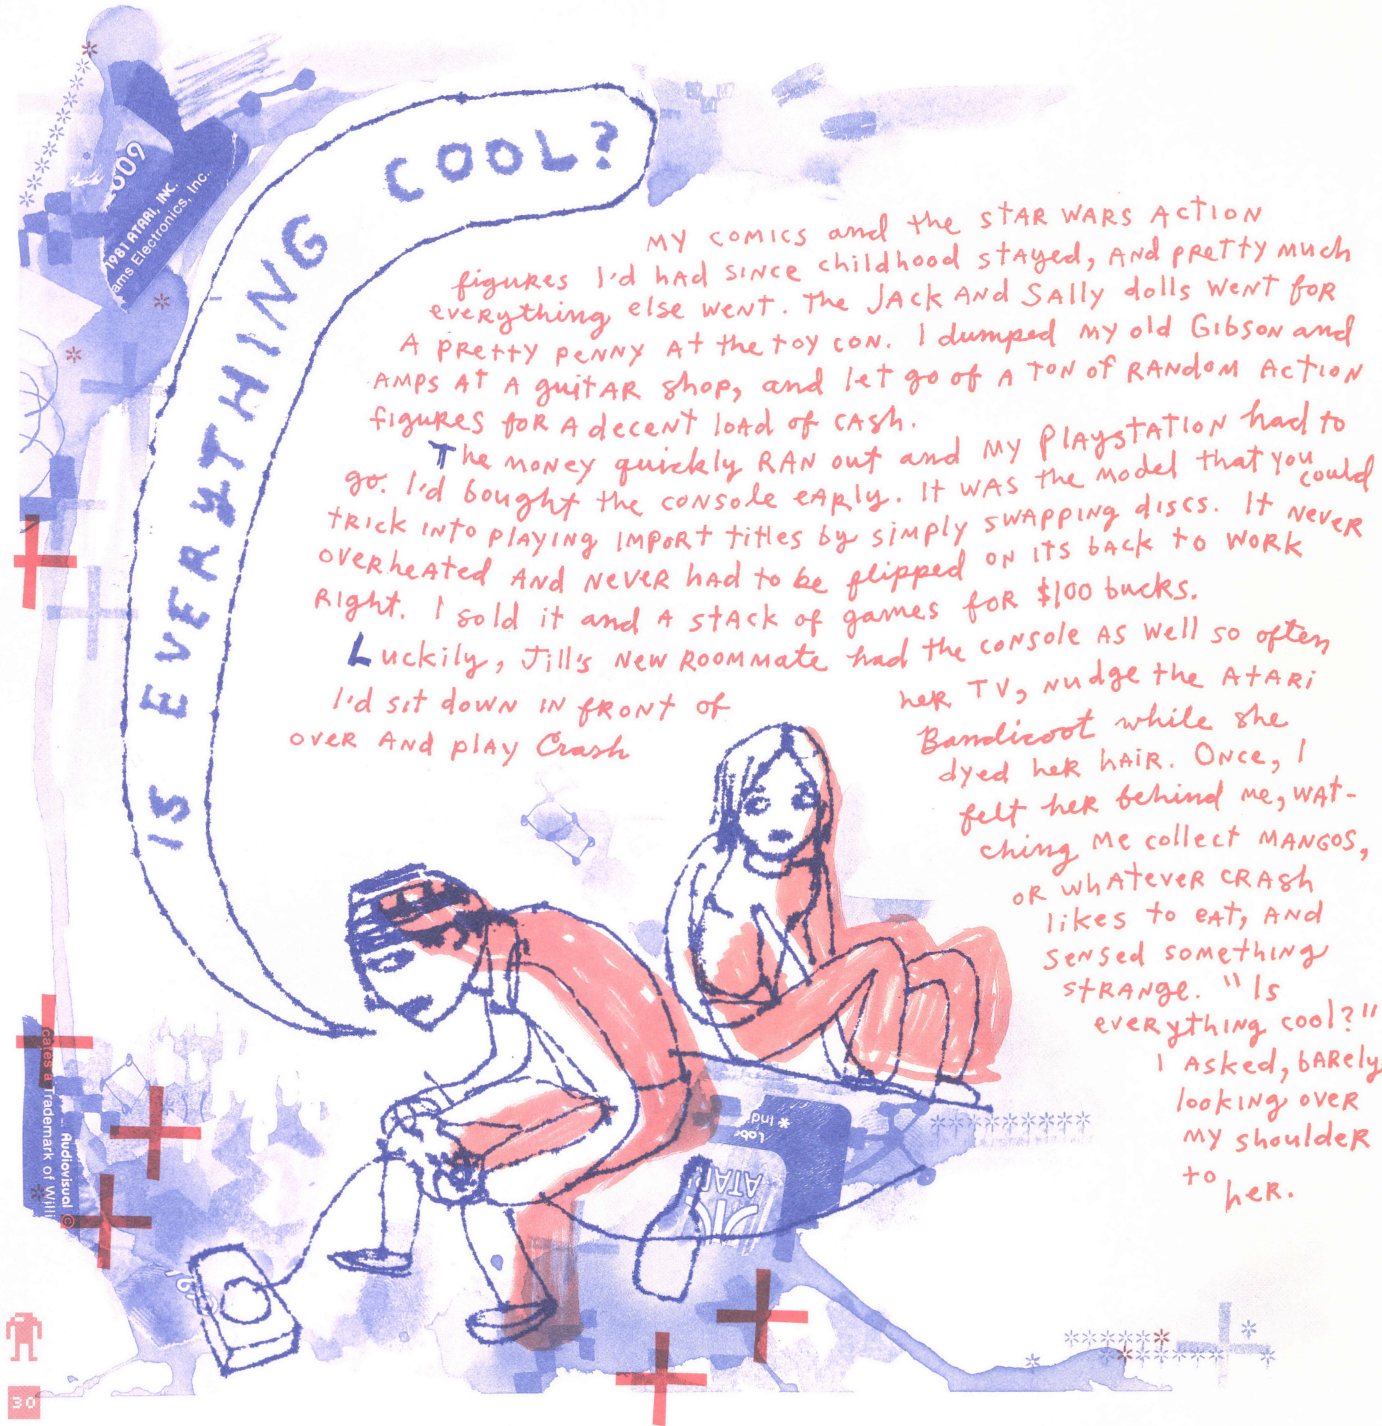 IS EVERYTHING COOL?
MY COMICS and the STAR WARS ACTION
figures I'd had since childhood stayed, and pretty much
everything else went. The Jack and Sally dolls went for
a pretty penny at the toy con. I dumped my old Gibson and
amps at a guitar shop, and let go of a ton of random action
figures for a decent load of cash.
The money quickly ran out and my Playstation had to
go. I'd bought the console early. It was the model that you could
trick into playing import titles by simply swapping discs. It never
overheated and never had to be flipped on its back to work
right. I sold it and a stack of games for $100 bucks.
Luckily, Jill's new roommate had the console as well so often
I'd sit down in front of her TV, nudge the Atari
over and play Crash Bandicoot while she
dyed her hair. Once, I
felt her behind me, wat-
ching me collect mangos,
or whatever Crash
likes to eat, and
sensed something
strange. "Is
everything cool?"
I asked, barely
looking over
my shoulder
to her.
609
1981 ATARI, INC.
ams Electronics, Inc.
cates a Trademark of Willi
Audiovisual ©
* Ind
Lobr
ATARI
30